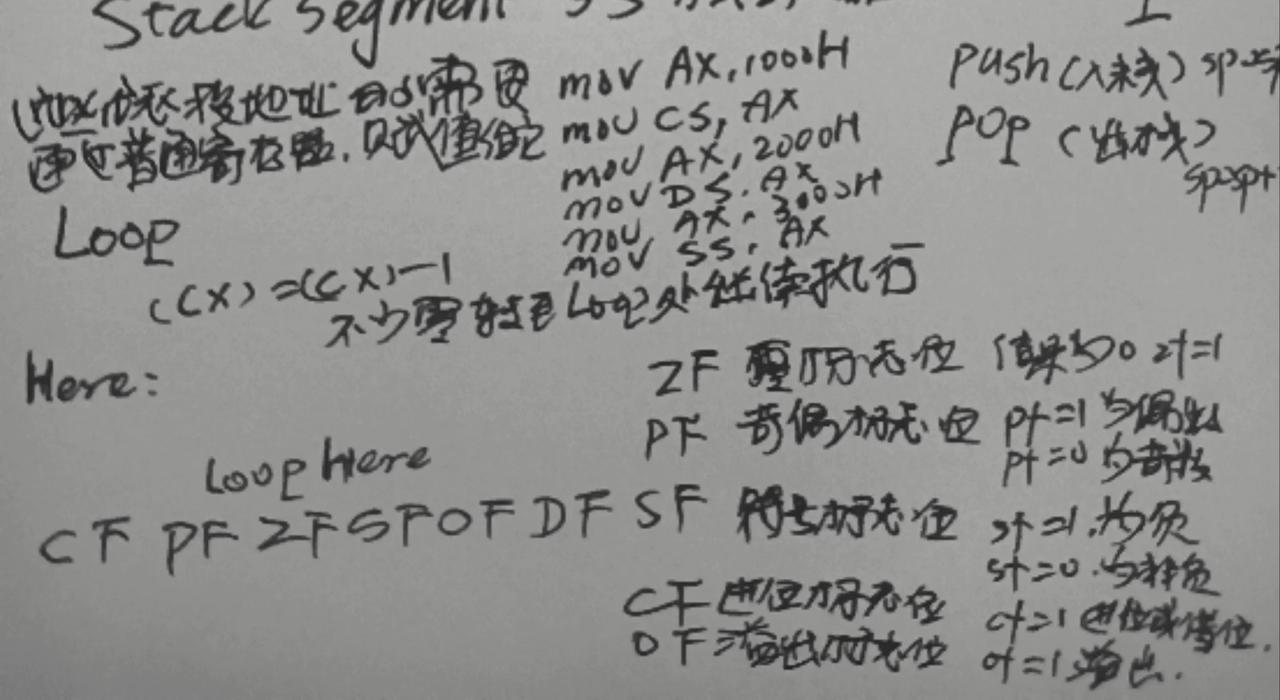 Stack segment SS
mov AX, 1000H
通过普通寄存器, 只赋值给它 mov CS, AX
mov AX, 2000H
mov DS, AX
mov AX, 3000H
mov SS, AX
push (入栈)
POP (出栈)
Loop
(CX)=(CX)-1
不为零转至Loop处继续执行
Here:
Loop Here
CF PF ZF SF OF DF
ZF 零标志位 结果为0 zf=1
PF 奇偶标志位 pf=1 为偶数
pf=0 为奇数
SF 符号标志位 sf=1.为负
sf=0.为非负
CF 进位标志位 cf=1 进位或借位.
OF 溢出标志位 of=1 溢出.